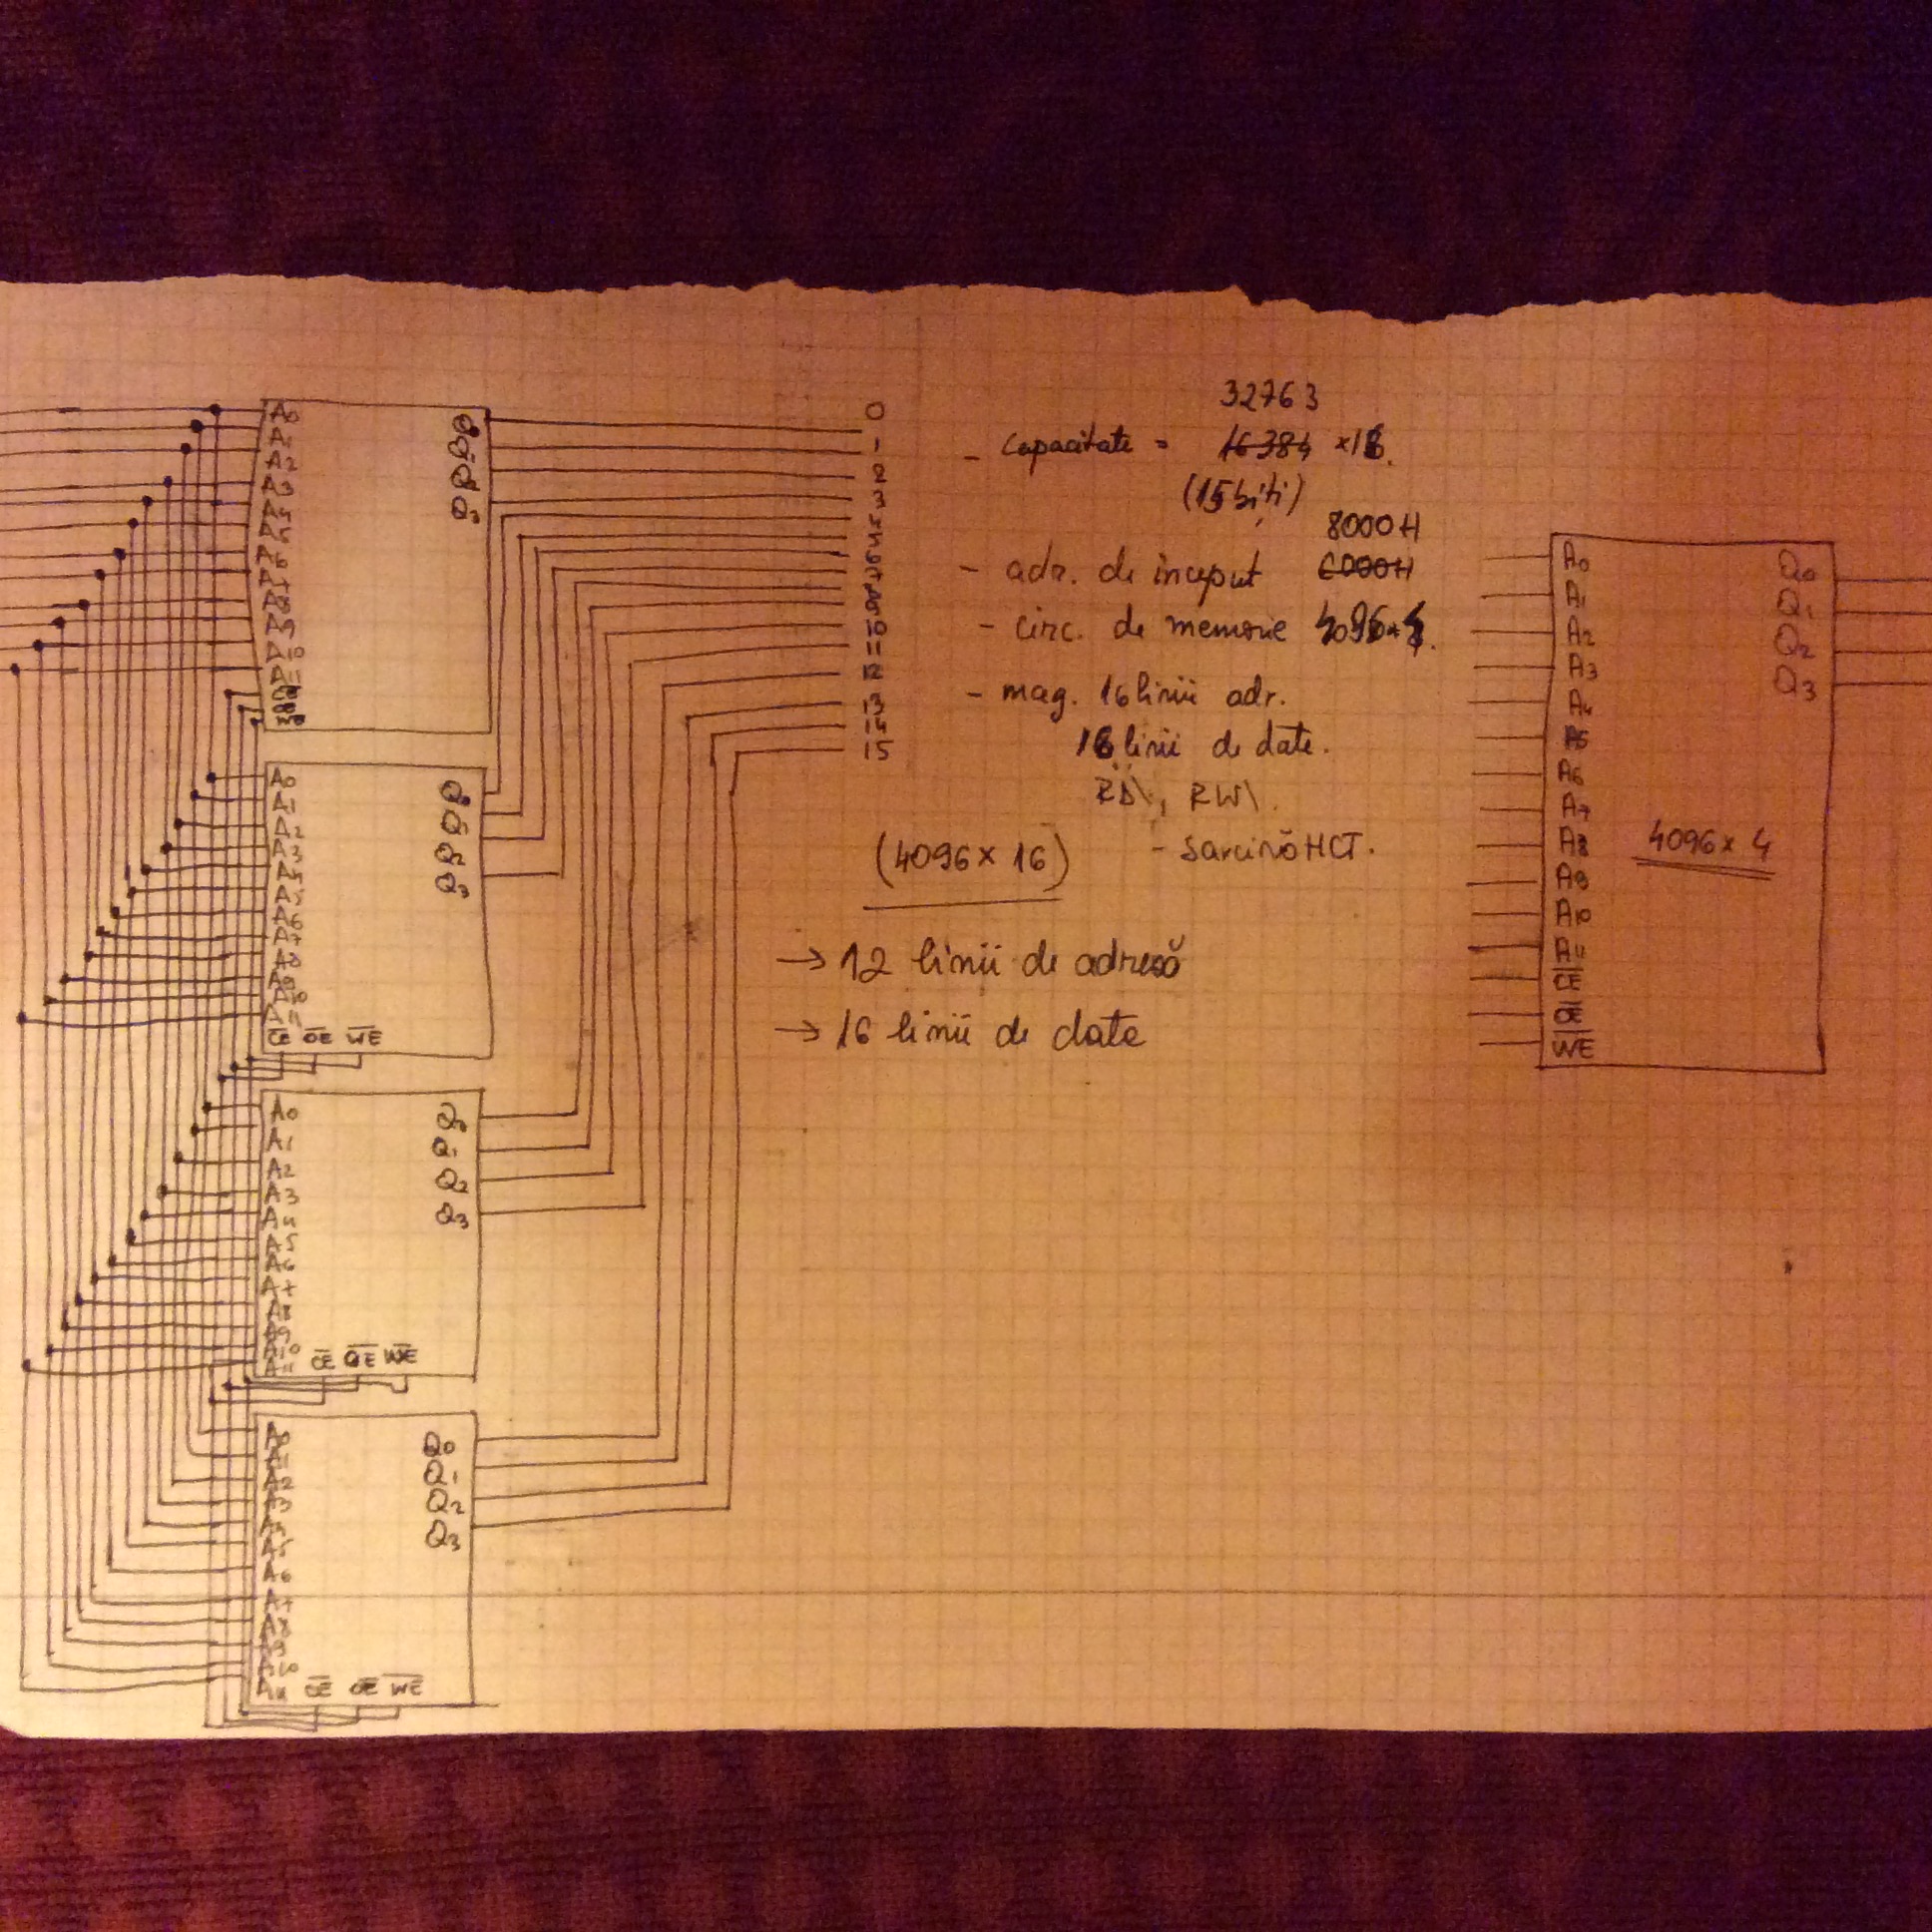 A0
A1
A2
A3
A4
A5
A6
A7
A8
A9
A10
A11
Q1
Q2
Q3
0
1
2
3
5
4
6
7
10
11
12
13
14
15
A0
A1
A2
A3
A4
A5
A6
A7
A8
A9
A10
A11
CE OE WE
Q0
Q1
Q2
Q3
A0
A1
A2
A3
A4
A5
A6
A7
A8
A9
A10
A11
CE OE WE
Q0
Q1
Q2
Q3
A0
A1
A2
A3
A4
A5
A6
A7
A8
A9
A10
A11
CE OE WE
Q0
Q1
Q2
Q3
32763
- capacitate = 16384 ×16.
(15 biți)
8000H
- adr. de început 6000H
- circ. de memorie 4096×4.
- mag. 16 linii adr.
16 linii de date.
RD\, RW\.
(4096 × 16) - sarcină HCT.
→ 12 linii de adresă
→ 16 linii de date
A0
A1
A2
A3
A4
A5
A6
A7
A8
A9
A10
A11
CE
OE
WE
Q0
Q1
Q2
Q3
4096 × 4